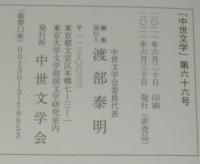 「中世文学」第六十六号
二〇二一年六月二十日 印刷
二〇二一年六月三十日 発行(非売品)
中世文学会委員代表
編集
発行人 渡部泰明
〒一一三-〇〇三三
東京都文京区本郷七-三-一
東京大学文学部国文学研究室内
発行所 中世文学会
(振替口座 00130-3-178853)